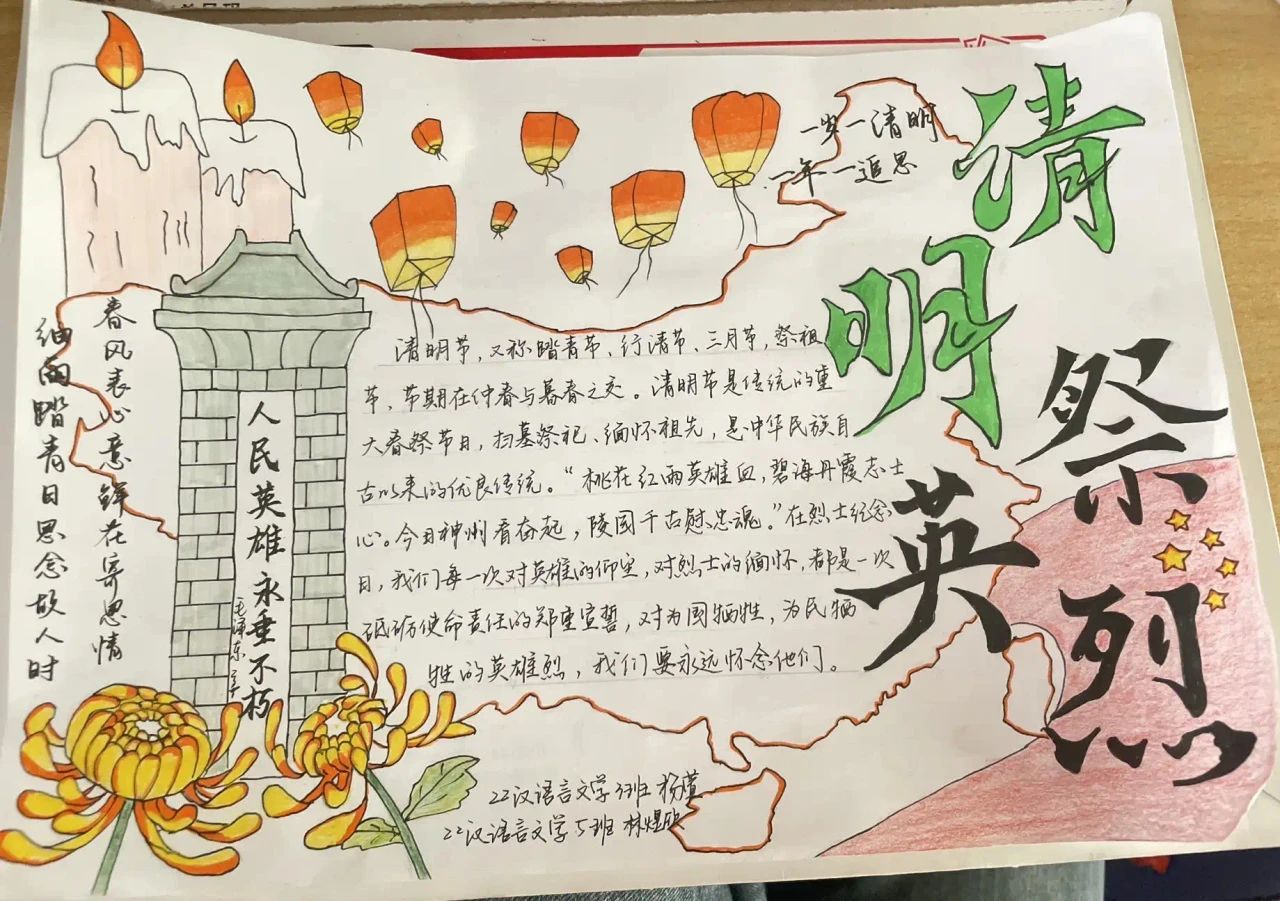 清明
祭英烈
一岁一清明
一年一追思
春风表心意鲜花寄思情
细雨踏青日思念故人时
人民英雄永垂不朽
毛泽东
清明节,又称踏青节、行清节、三月节,祭祖
节,节期在仲春与暮春之交。清明节是传统的重
大春祭节日,扫墓祭祀、缅怀祖先,是中华民族自
古以来的优良传统。“桃花红雨英雄血,碧海丹霞志士
心。今日神州看奋起,陵园千古慰忠魂。”在烈士纪念
日,我们每一次对英雄的仰望,对烈士的缅怀,都是一次
砥砺使命责任的郑重宣誓,对为国牺牲,为民牺
牲的英雄烈,我们要永远怀念他们。
22汉语言文学3班 杨
22汉语言文学5班 林煜